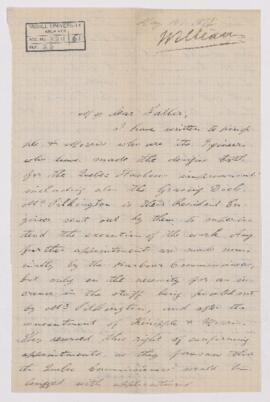 McGILL UNIVERSITY
ARCHIVES
ACC. NO.
REF.
William
My dear Father,
I have written to Kinip
ple & Morris who are the Engineers
who have made the designs both
for the Quebec Harbour improvement
including also the Graving Dock.
Mr Pilkington is their Resident En
gineer sent out by them to superin
tend the execution of the work. Any
further appointments are made nom
inally by the Harbour Commissioners,
but only on the necessity for an in
crease in the staff being pointed out
by Mr Pilkington, and after the
consent of Kinipple & Morris.
They reserved this right of confirming
appointments, as they foresaw that
the Quebec Commissioners would be
besieged with applications